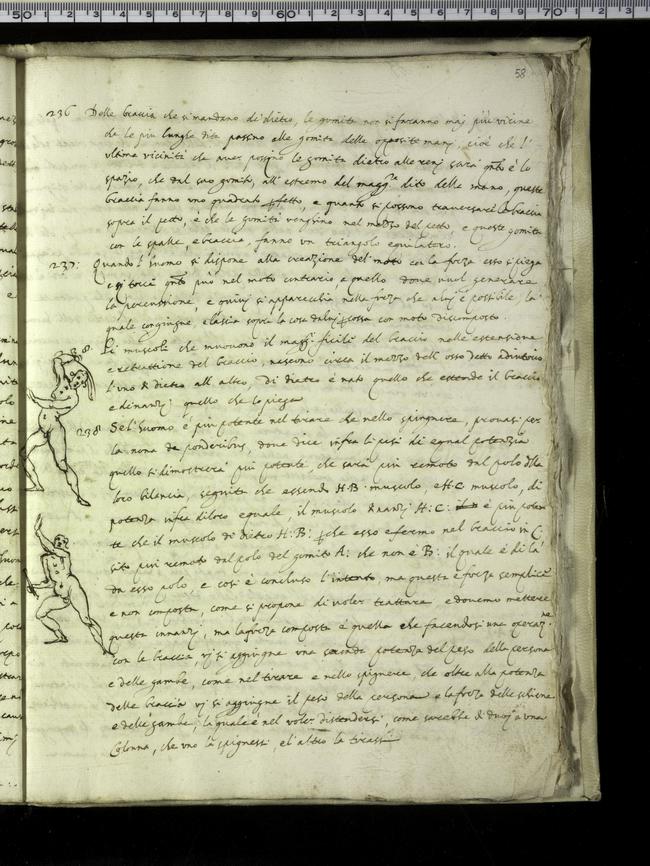 58
236 Delle braccia che si mandano di dietro, le gomita non si faranno maj più vicine
che le più lunghe dita passino alle gomita delle opposite manj, cioè che l'
ultima vicinità che aver possino le gomita dietro alle renj sarà quto è lo
spazio, che dal suo gomito all' estremo del magg.r dito della mano, queste
braccia fanno uno quadrato pfetto, e quanto si possono traversare le braccia
sopra il petto, è che le gomita venghino nel mezzo del petto, e queste gomita
con le spalle, e braccia, fanno un triangolo equilatero.
237: Quando l' huomo si dispone alla creazione del moto con la forza esso si piega
e si torce quto può nel moto contrario a quello dove vuol generare
la percussione, e quivj si apparecchia nella forza che a luj è possibile, la
quale congiugne, e lascia sopra la cosa da luj pcossa con moto discomposto.
238. Li muscoli che muovono il magg: fucile del braccio nella estensione
e retrattione del braccio, nascono circa il mezzo dell' osso detto adiutorio
l'uno di dietro all' altro, di dietro è nato quello che estende il braccio
e dinanzj quello che lo piega
238 Se l' huomo è più potente nel tirare che nello spingnere, provasi per
la nona de ponderibus, dove dice infra li pesi di egual potenzia
quello si dimostrerà più potente, che sarà più remoto dal polo della
loro bilancia, seguita che essendo H: B: muscolo, e H: C muscolo, di
potenza infra di loro eguale, il muscolo dinanzj H: C: è più poten
te che il muscolo di dietro H: B: pche esso è fermo nel braccio in C:
sito più remoto dal polo del gomito A: che non è B: il quale è di là
da esso polo, e così è concluso l'intento, ma questa è forza semplice
e non composta, come si propone di voler trattare e dovemo mettere
questa innanzj, ma la forza composta è quella che facendosi una operaz.ne
con le braccia vj si aggiugne una seconda potenza del peso della persona
e delle gambe, come nel tirare e nello spignere, che oltre alla potenza
delle braccia vj si aggiugne il peso della persona e la forza delle schiene
e delle gambe, la quale è nel voler distendersi, come sarebbe di duoj a una
Colonna, che uno la spignessi, e l' altro la tirassi